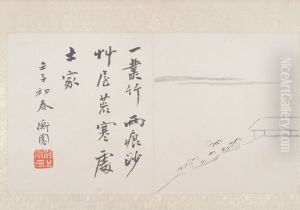 一叢竹兩痕沙
艸屋荒寒處
士家
壬子初春